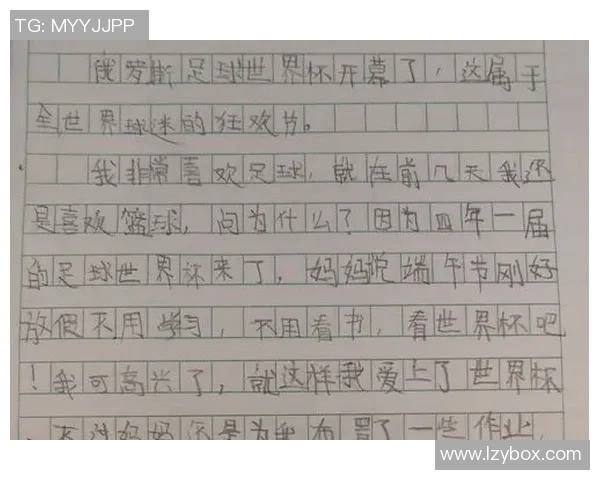 TG: MYYJJPP
俄罗斯足球世界杯开幕了，这属于
全世界球迷的狂欢节。
我非常喜欢足球，就在前几天我还
是喜欢篮球，问为什么？因为四年一届
的足球世界杯来了，妈妈说端午节刚好
放假不用学习，不用看书，看世界杯吧
！我可高兴了，就这样我爱上了世界杯
，不过妈妈还是为我布置了一些作业，
www.lzybox.com